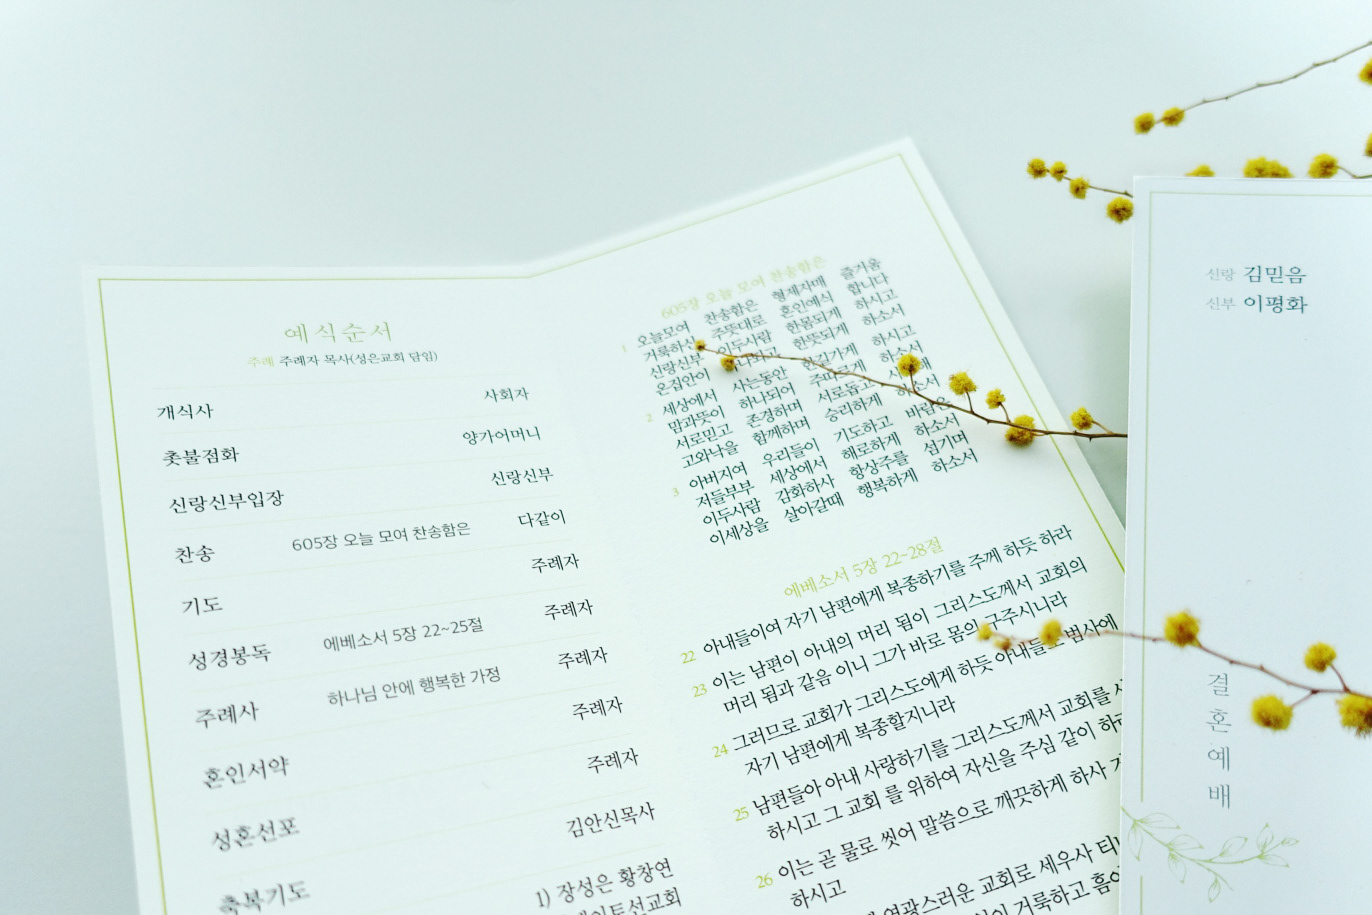 예식순서
주례 주례자 목사(성은교회 담임)
개식사 사회자
촛불점화 양가어머니
신랑신부입장 신랑신부
찬송 605장 오늘 모여 찬송함은 다같이
기도 주례자
성경봉독 에베소서 5장 22~25절 주례자
주례사 하나님 안에 행복한 가정 주례자
혼인서약 주례자
성혼선포 주례자
축복기도 김안신목사
1) 장성은 황창연
605장 오늘 모여 찬송함은
1 오늘모여 찬송함은 형제자매 즐거움
거룩하신 주뜻대로 혼인예식 합니다
신랑신부 이두사람 한몸되게 하시고
온집안이 하나되고 한뜻되게 하소서
2 세상에서 사는동안 한길가게 하시고
맘과뜻이 하나되어 주따르게 하소서
서로믿고 존경하며 서로돕고
고와낙을 함께하며 승리하게 하소서
3 아버지여 우리들이 기도하고 바람은
저들부부 세상에서 해로하게 하소서
이두사람 감화하사 항상주를 섬기며
이세상을 살아갈때 행복하게 하소서
에베소서 5장 22~28절
22 아내들이여 자기 남편에게 복종하기를 주께 하듯 하라
23 이는 남편이 아내의 머리 됨이 그리스도께서 교회의
머리 됨과 같음 이니 그가 바로 몸의 구주시니라
24 그러므로 교회가 그리스도에게 하듯 아내들도 범사에
자기 남편에게 복종할지니라
25 남편들아 아내 사랑하기를 그리스도께서 교회를
하시고 그 교회 를 위하여 자신을 주심 같이
26 이는 곧 물로 씻어 말씀으로 깨끗하게 하사
하시고
영광스러운 교회로 세우사
거룩하고
신랑 김믿음
신부 이평화
결혼예배